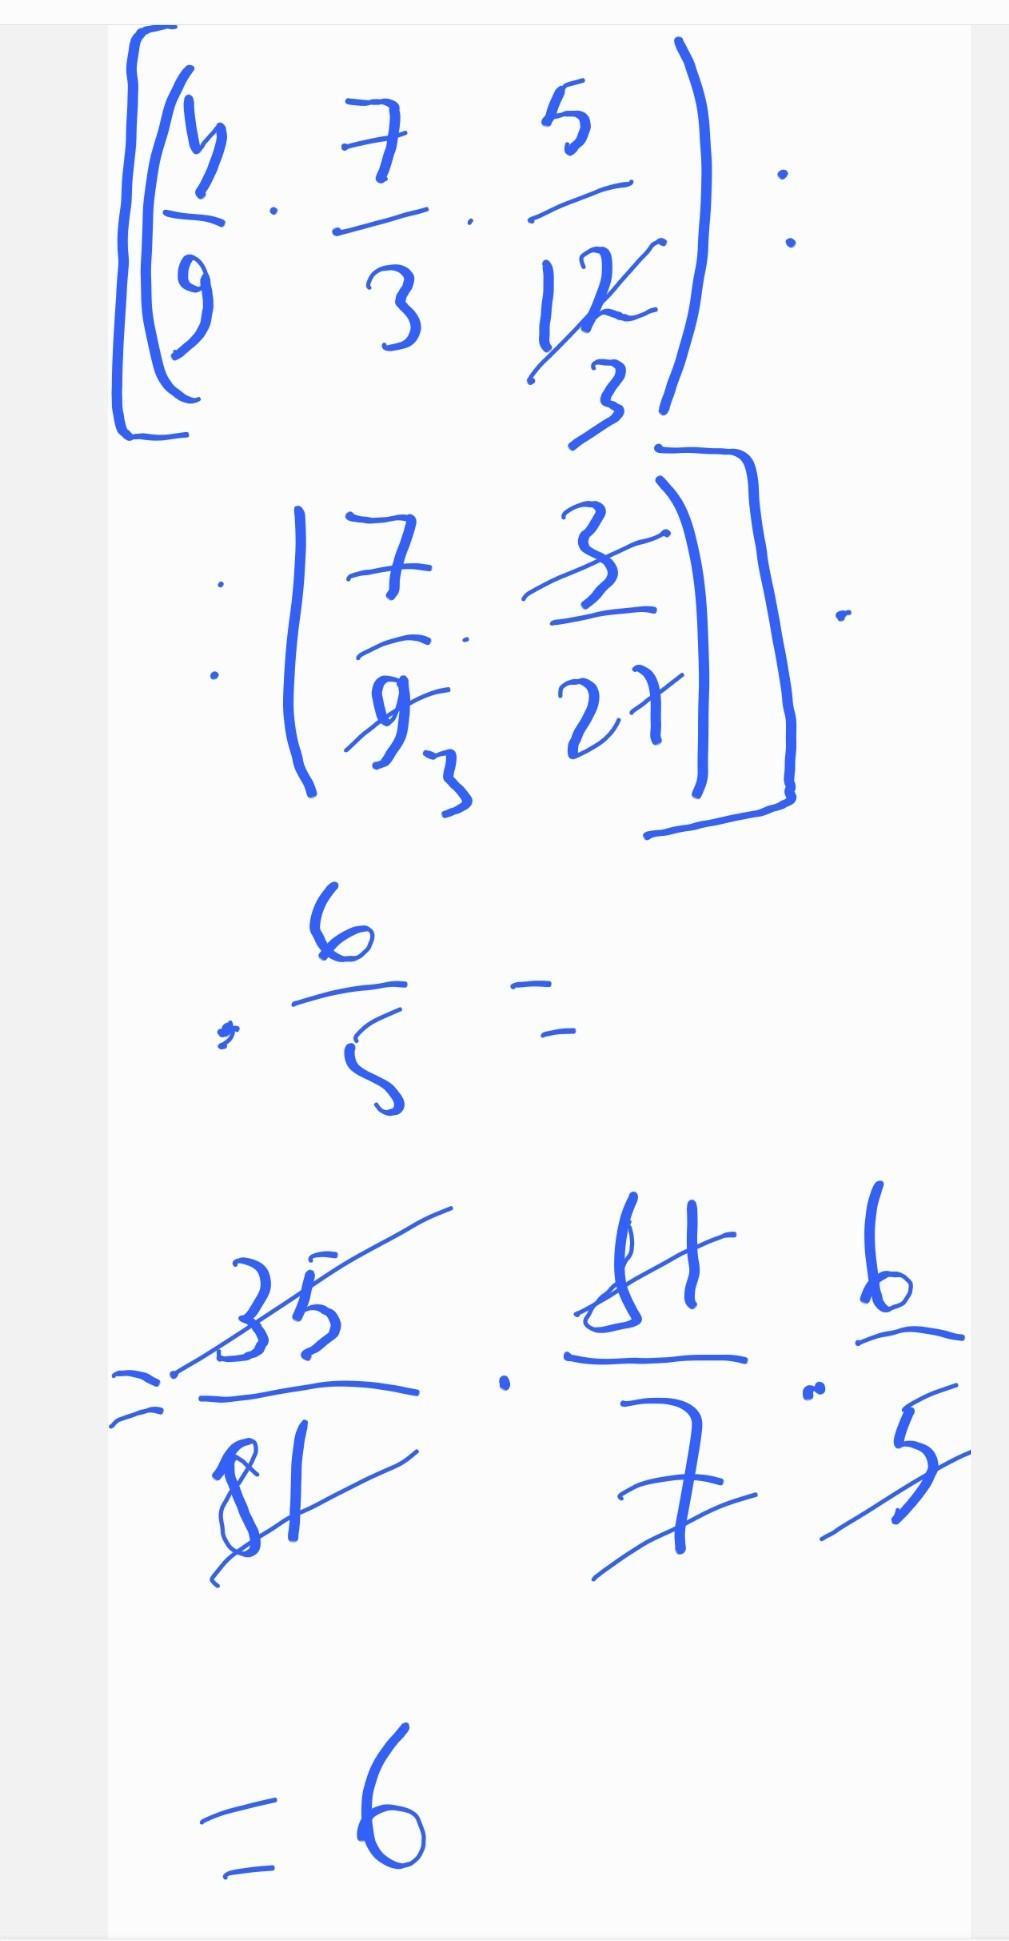 [(4/9 · 7/3 · 5/12 3) :
: (7/9 3 · 3/27)] ·
· 6/5 =
= 35/81 · 81/7 · 6/5
= 6